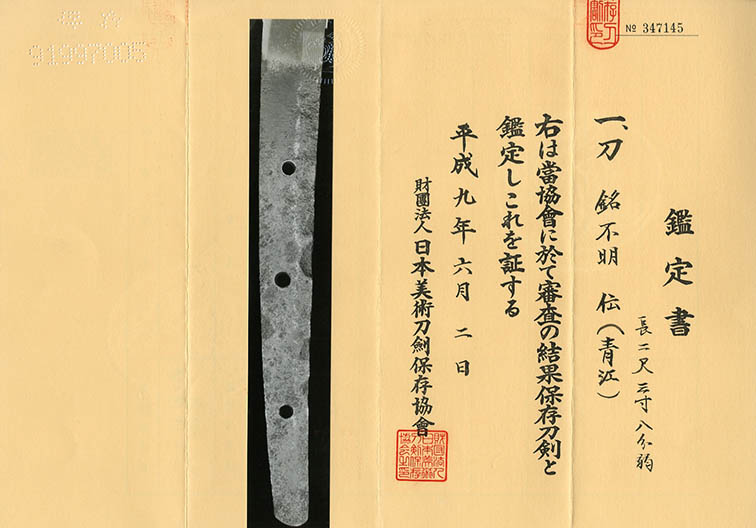 鑑定書
一、刀 銘不明 伝(青江)
長二尺三寸八分弱
右は當協會に於て審査の結果保存刀剣と
鑑定しこれを証する
平成九年六月二日
財團法人日本美術刀剣保存協會
№ 347145
91997005